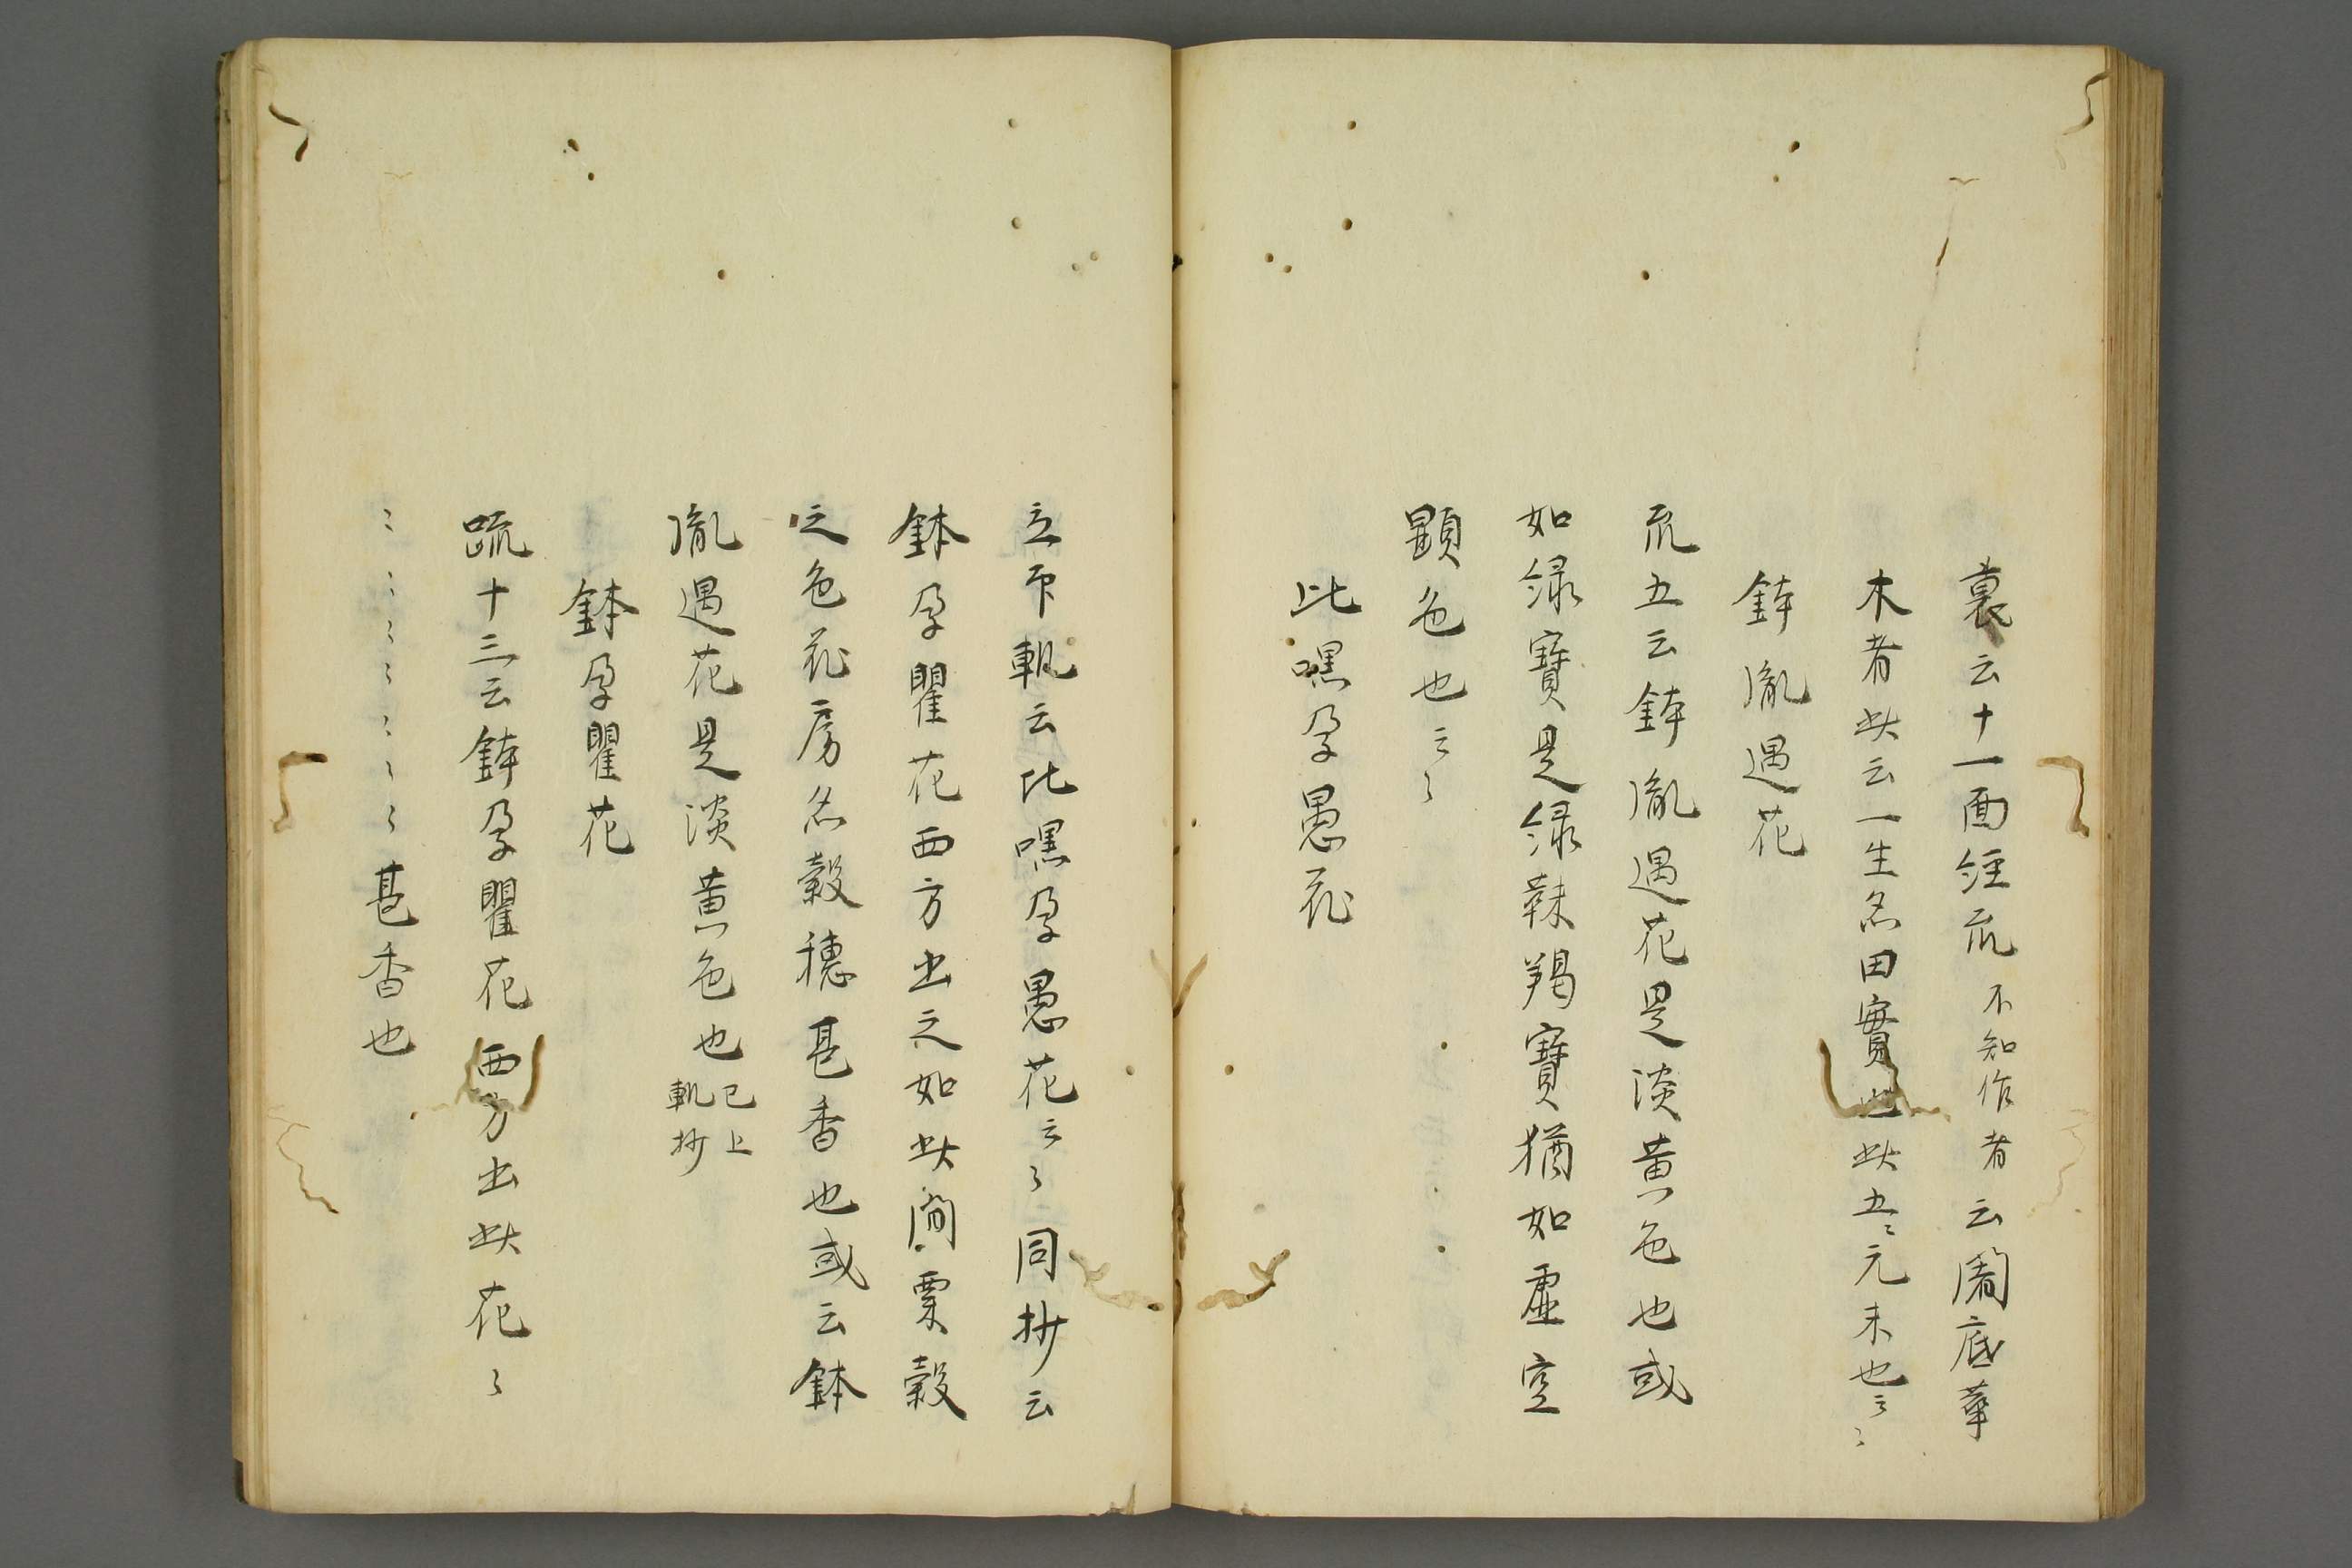 裏云十一面経疏不知作者云闍底華
木者此云一生名田實也此五〻元未也云〻
鉢胤遇花
疏五云鉢胤遇花是淡黄色也或
如緑寶是緑靺羯寶猶如虚空
顕色也云〻
比嘿孕愚花
立印軌云比嘿孕愚花云〻同抄云
鉢孕瞿花西方出之如此間粟穀
之色花房名穀穂甚香也或云鉢
胤遇花是淡黄色也已上軌抄
鉢孕瞿花
疏十三云鉢孕瞿花西方出此花〻
〻〻〻〻〻〻〻甚香也